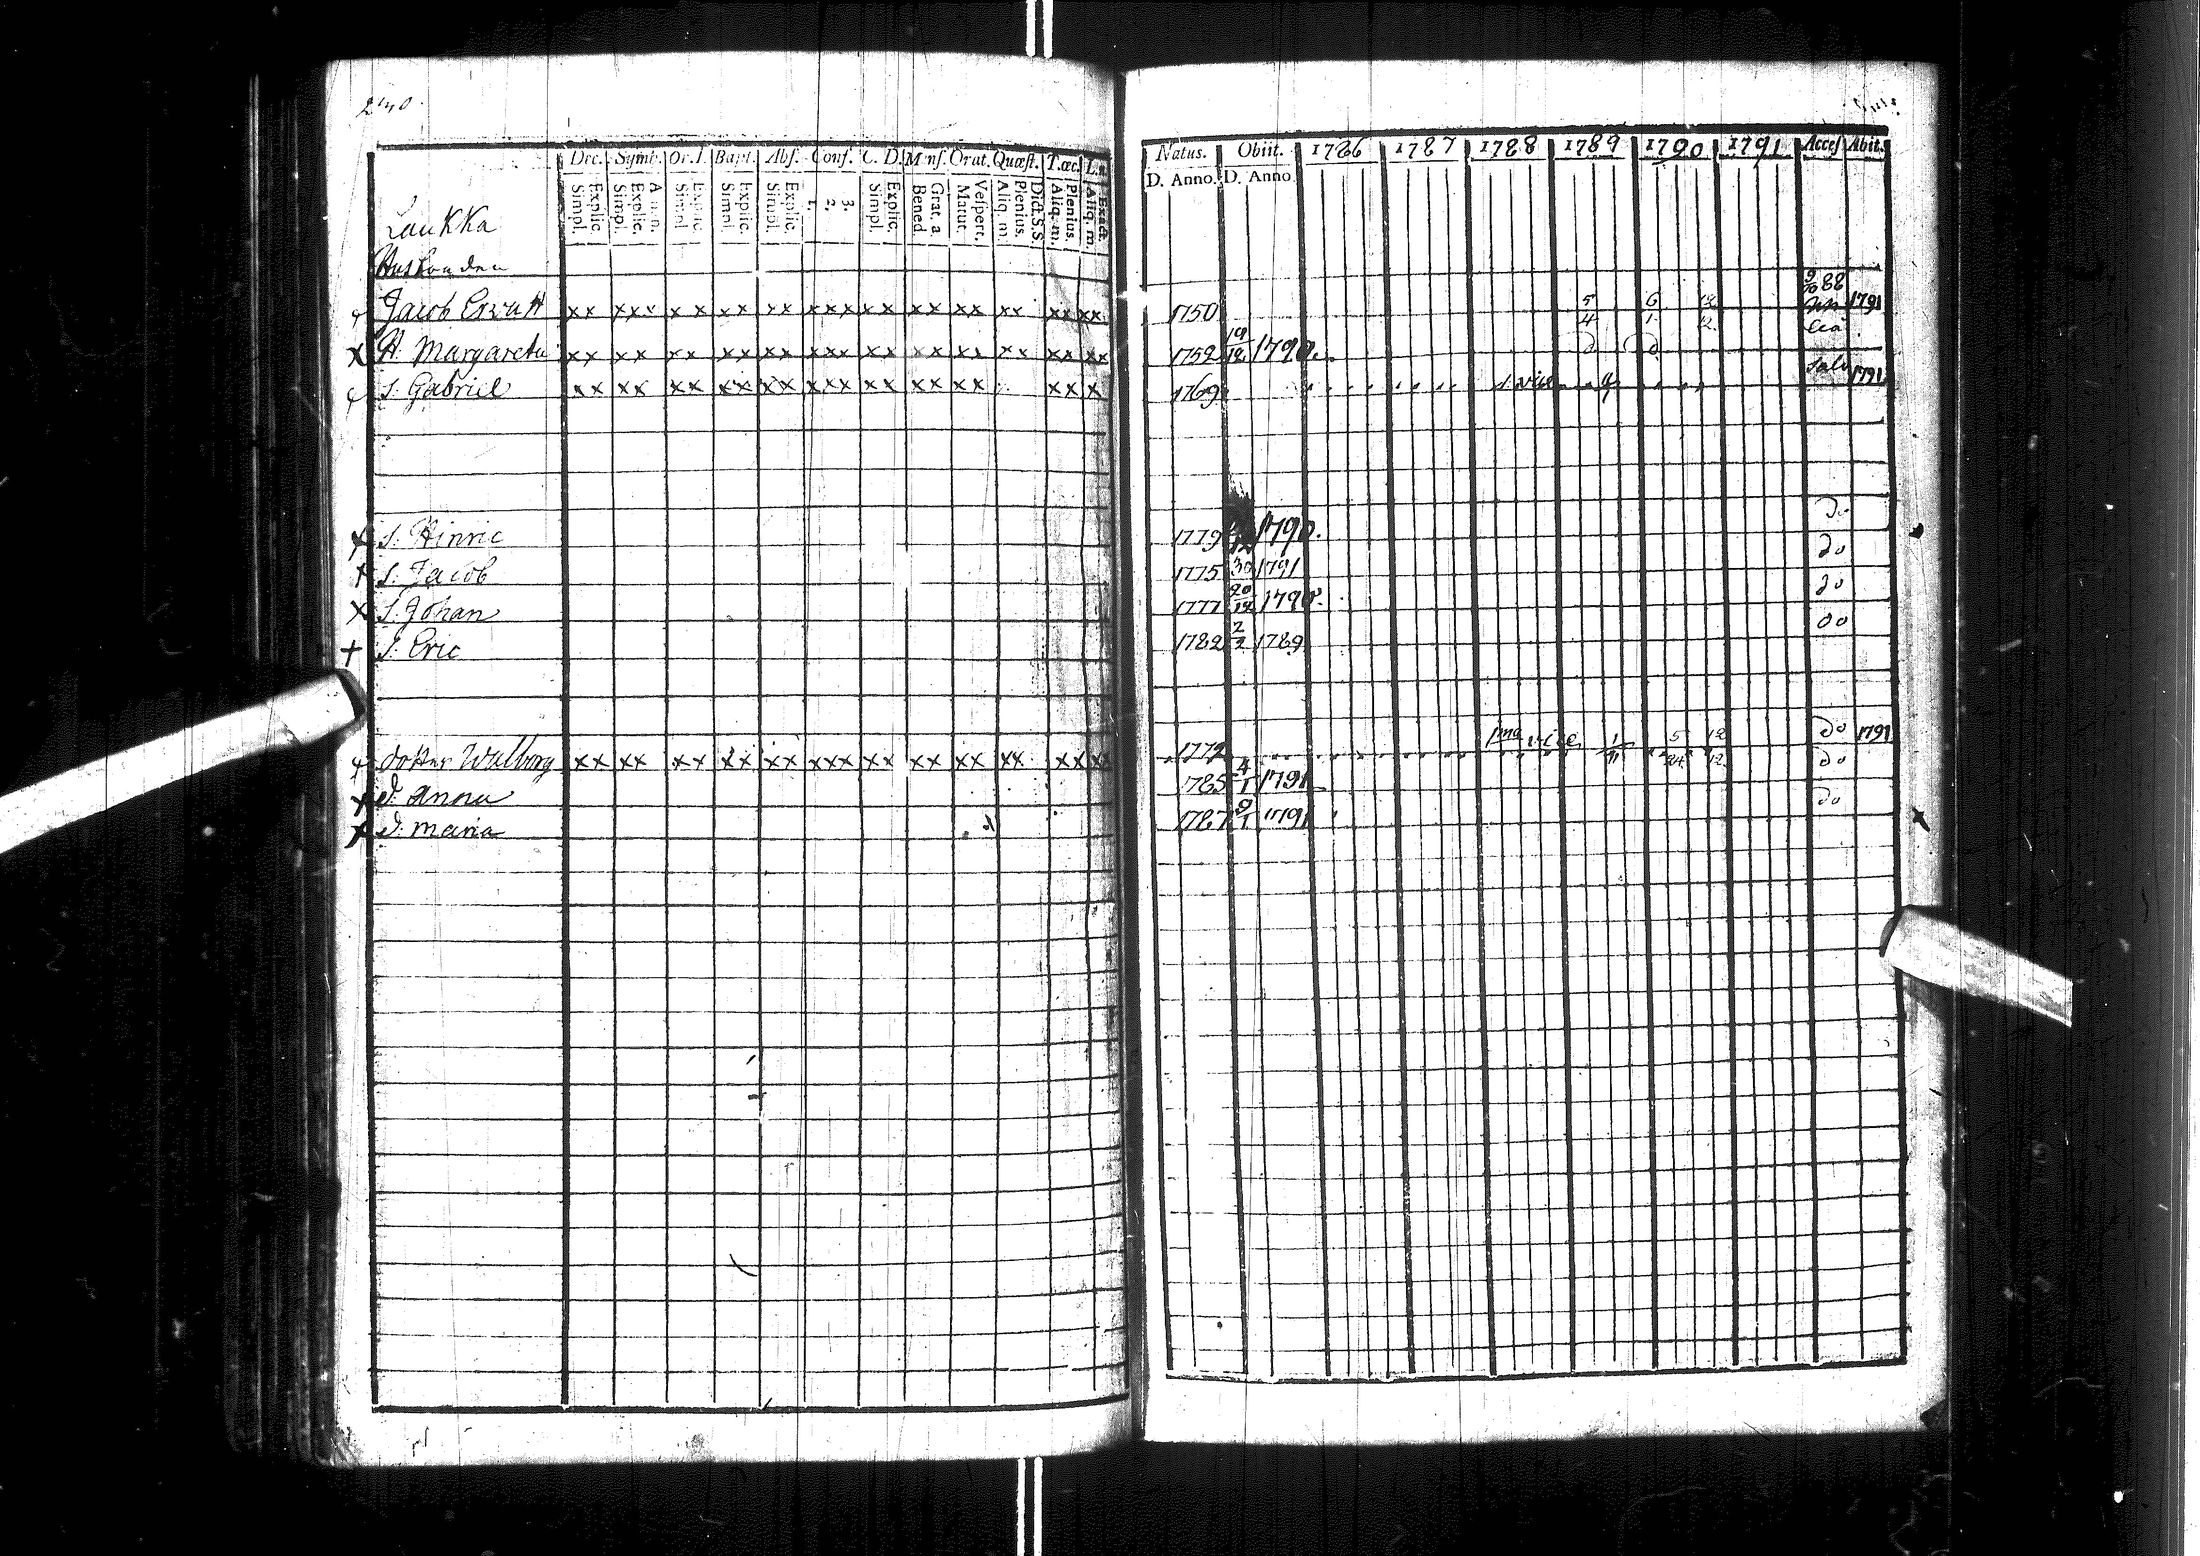 240.
Dec. Symb. Or. I. Bapt. Abs. Conf. C. D. Mensf. Orat. Quæst. T.œc. L.n.
Explic. Simpl. A...n. Explic. Simpl. Explic. Simpl. Explic. Simpl. Explic. Simpl. 3. 2. 1. Explic. Simpl. Grat. a. Bened. Vespert. Matut. Dict.S.S. Plenius. Aliq. m. Plenius. Aliq. m. Exacte Aliq. m.
Laukka
Jacob Ersson xx xxx xx xx xx xxxx xx xx xx xx xx xx
H. Margareta xx xx xx xx xx xxx xx xx xx xx xx xx
S. Gabriel xx xx xx xx xx xxx xx xx xx xxx x
S. Hinric
S. Jacob
S. Johan
S. Eric
dotter Walborg xx xx xx xx xx xxx xx xx xx xx xx xx
D. Anna
D. Maria
Natus. Obiit. 1786 1787 1788 1789 1790 1791 Acces Abit.
D. Anno. D. Anno.
1750 5/4 6/1 12/12 9/10 88 1791
1752 19/12 1790.
1769 1 vice 1791
1779 12 1790. do
1775 30 1791 do
1777 20/12 1790. do
1782 2/2 1789 do
1772 1ma vice 1/11 5/24 12/12 do 1791
1785 4/1 1791 do
1787 9/1 1791 do